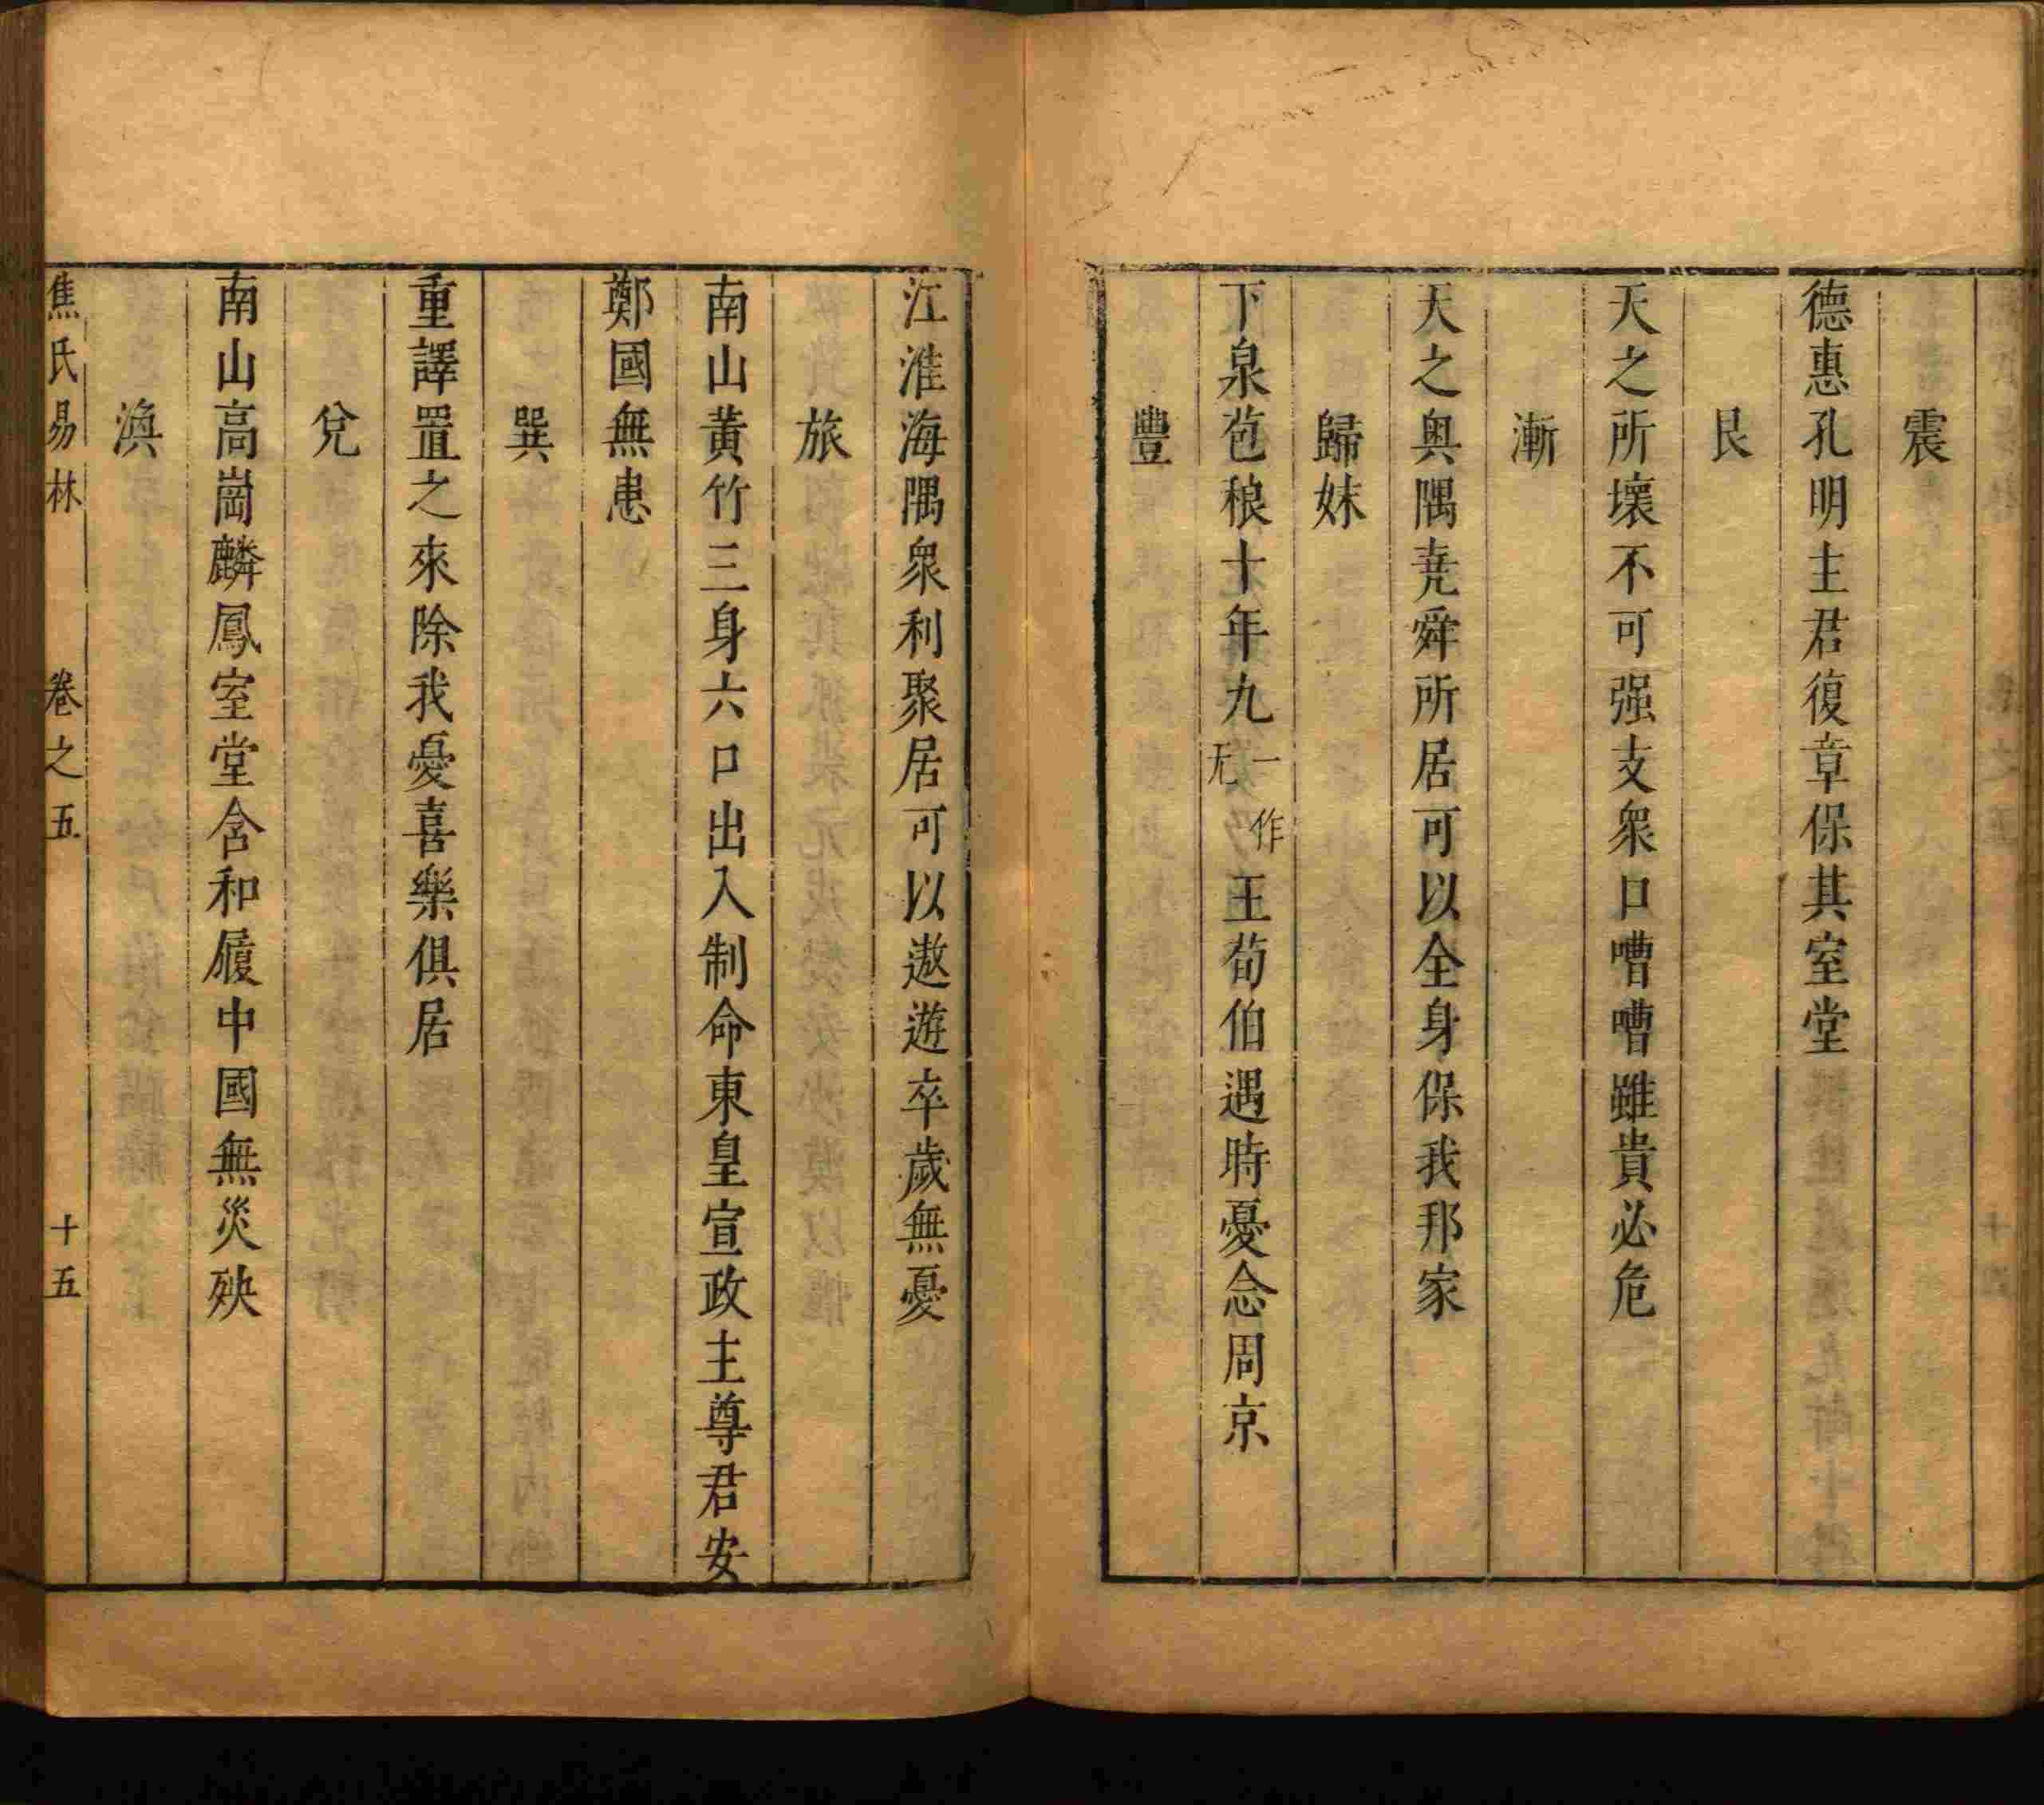 震
德惠孔明主君復章保其室堂
艮
天之所壞不可强支衆口嘈嘈雖貴必危
漸
天之奥隅尭舜所居可以全身保我邦家
歸妹
下泉苞稂十年九一作无王荀伯遇時憂念周京
豐
江淮海隅衆利聚居可以遨遊卒歲無憂
旅
南山黄竹三身六口出入制命東皇宣政主尊君安
鄭國無患
巽
重譯置之來除我憂喜樂俱居
兌
南山高崗麟鳳室堂含和履中國無災殃
渙
焦氏易林 卷之五 十五